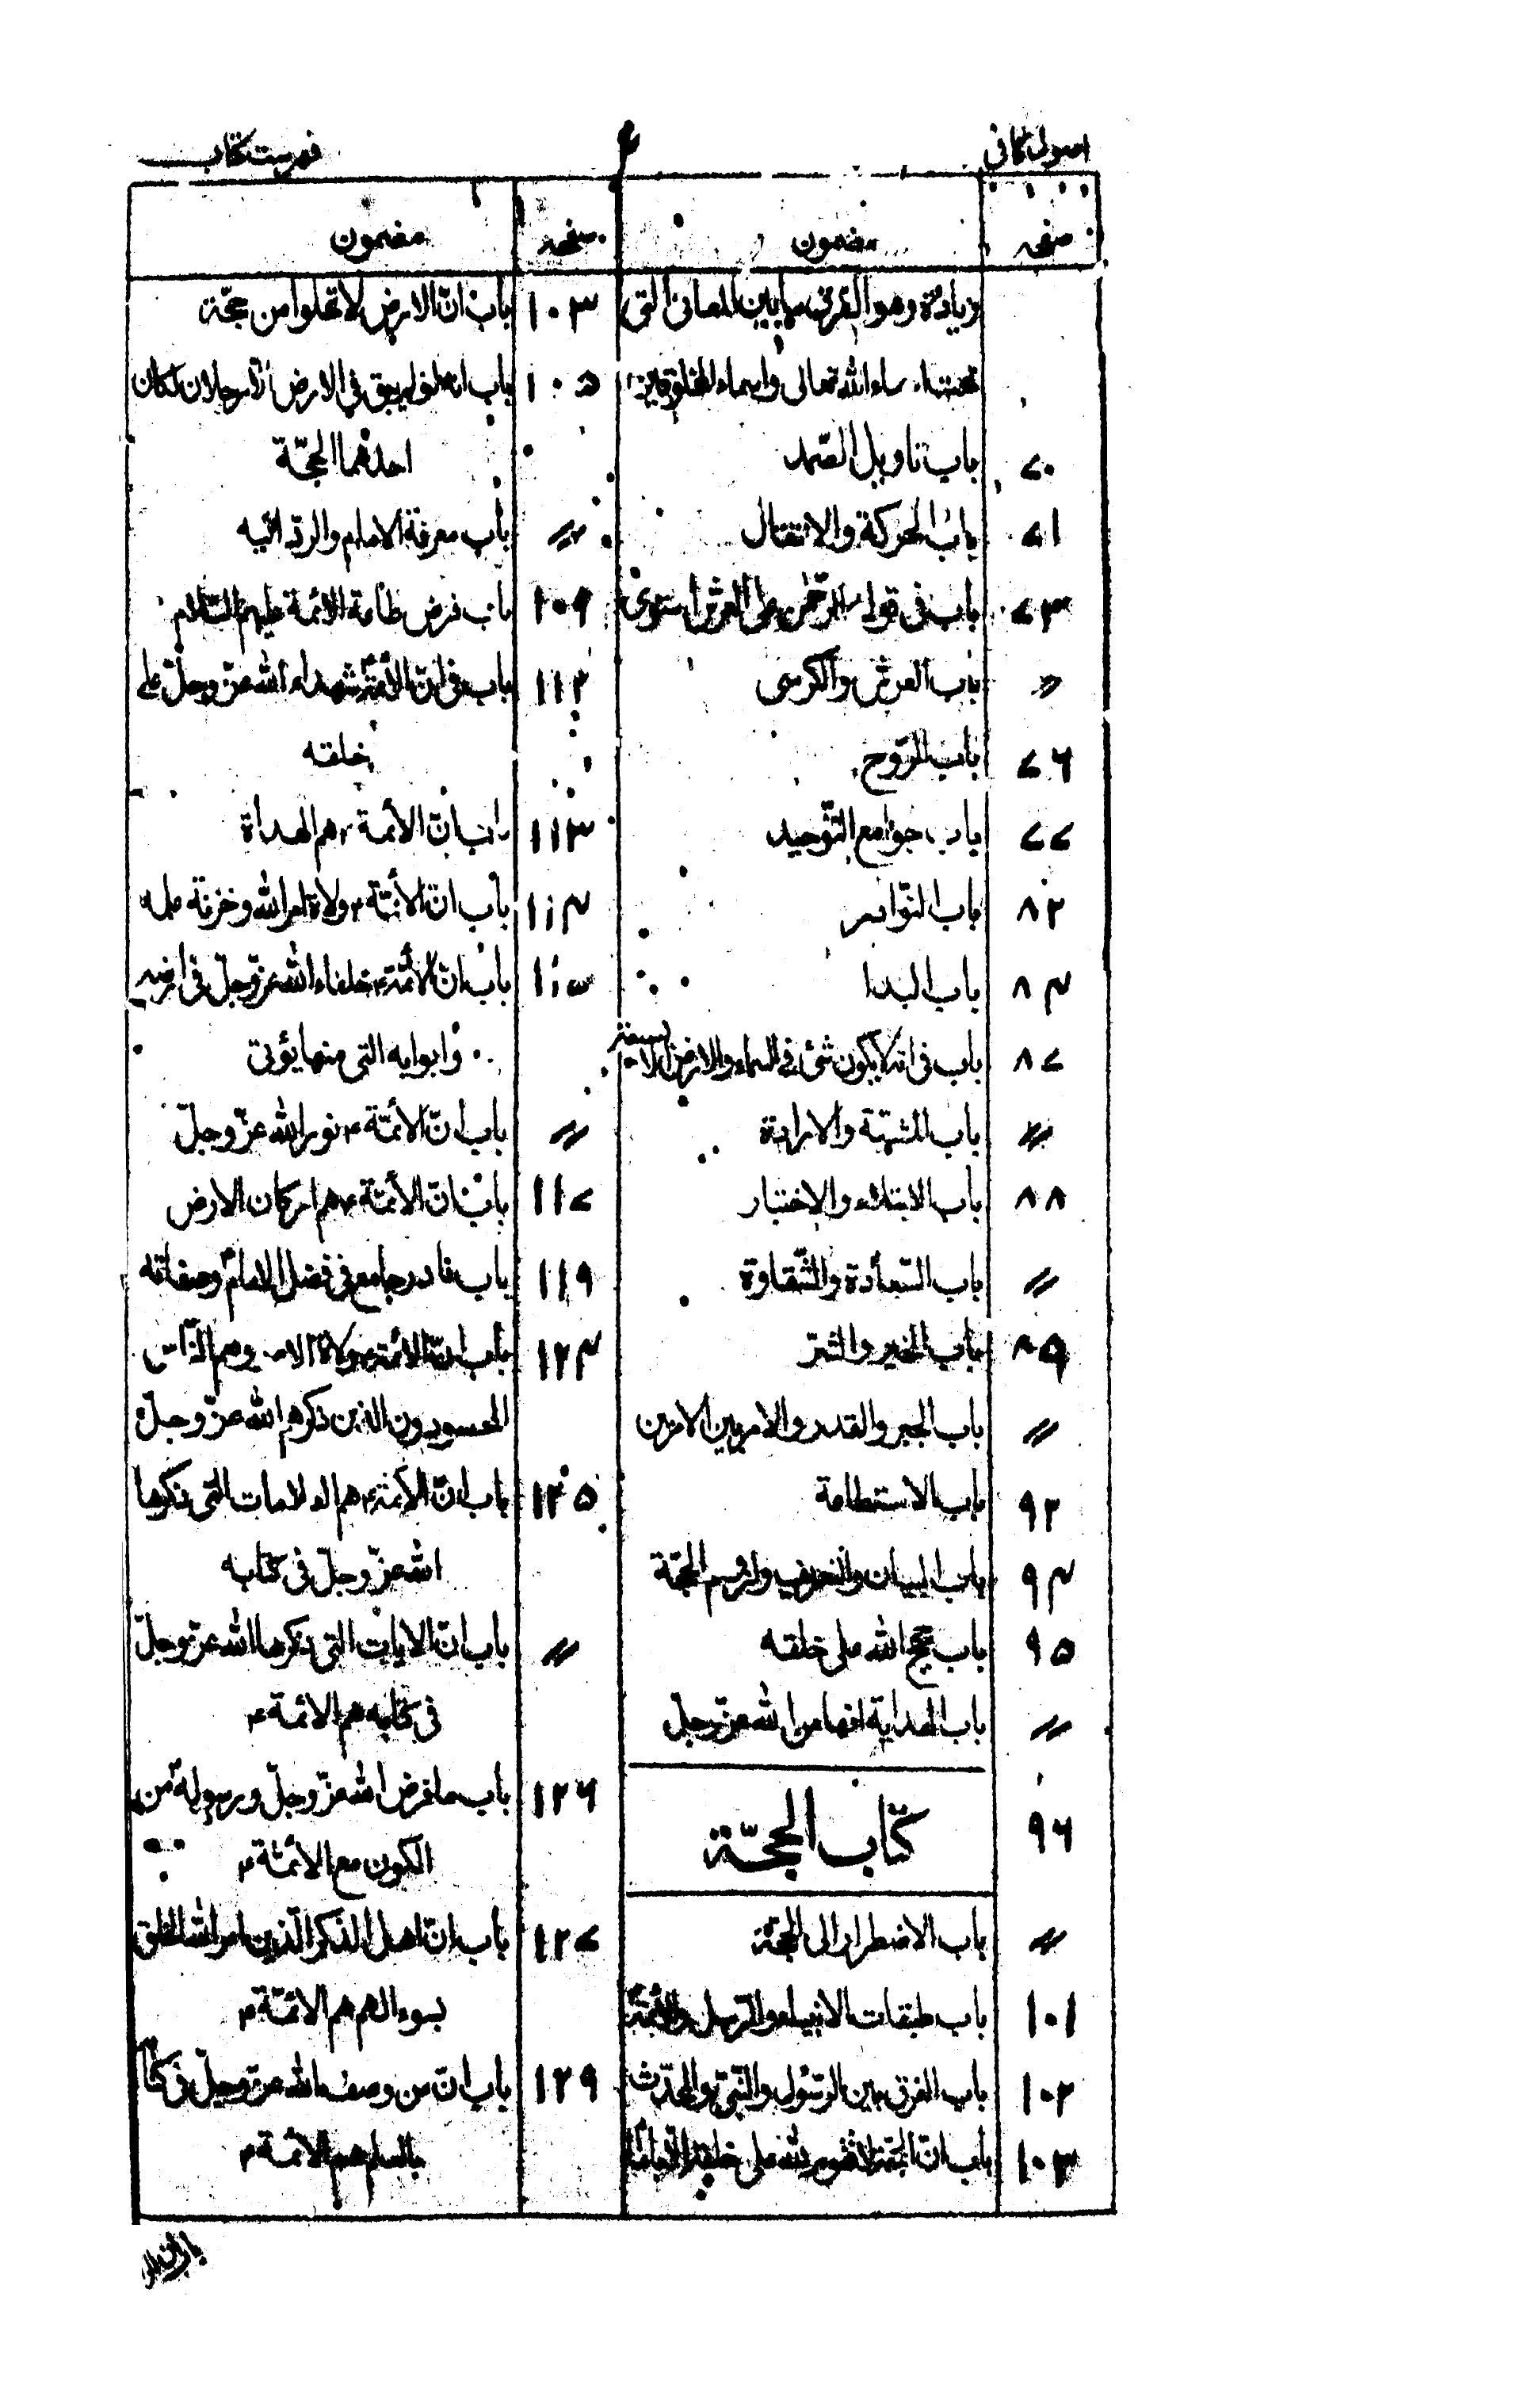 اصول کافی
۴
فهرست کتاب
صفحه مضمون
زیادة وهو الفرق ما بین المعانی التی
تحت اسماء الله تعالی واسماء المخلوقین
۷۰ باب تاویل الصمد
۷۱ باب الحرکة والانتقال
۷۳ باب فی قوله الرحمن علی العرش استوی
〃 باب العرش والکرسی
۷۶ باب الروح
۷۷ باب جوامع التوحید
۸۲ باب النوادر
۸۴ باب البدا
۸۷ باب فی انه لا یکون شئ فی السماء والارض الا بسبعة
〃 باب المشیة والارادة
۸۸ باب الابتلاء والاختبار
〃 باب السعادة والشقاوة
۸۹ باب الخیر والشر
〃 باب الجبر والقدر والامر بین الامرین
۹۲ باب الاستطاعة
۹۴ باب البیان والتعریف ولزوم الحجة
۹۵ باب حجج الله علی خلقه
〃 باب الهدایة انها من الله عزّ وجلّ
۹۶ کتاب الحجّة
〃 باب الاضطرار الی الحجة
۱۰۱ باب طبقات الانبیاء والرسل والائمة
۱۰۲ باب الفرق بین الرسول والنبی والمحدث
۱۰۳ باب ان الحجة لا تقوم لله علی خلقه الا بامام
صفحه مضمون
۱۰۳ باب انّ الارض لا تخلوا من حجّة
۱۰۵ باب انه لو لم یبق فی الارض الا رجلان لکان
احدهما الحجّة
〃 باب معرفة الامام والردّ الیه
۱۰۹ باب فرض طاعة الائمة علیهم السّلام
۱۱۲ باب فی انّ الأئمة شهداء الله عزّ وجلّ علی
خلقه
۱۱۳ باب انّ الأئمة ع هم الهداة
۱۱۴ باب انّ الأئمّة ع ولاة امر الله وخزنة علمه
۱۱۵ باب انّ الأئمّة ع خلفاء الله عزّ وجلّ فی ارضه
وابوابه التی منها یؤتی
〃 باب انّ الأئمّة ع نور الله عزّ وجلّ
۱۱۷ باب انّ الأئمّة ع هم ارکان الارض
۱۱۹ باب نادر جامع فی فضل الامام وصفاته
۱۲۴ باب انّ الائمة ع ولاة الامر وهم النّاس
المحسودون الذین ذکرهم الله عزّ وجلّ
۱۲۵ باب انّ الأئمة ع هم العلامات التی ذکرها
الله عزّ وجلّ فی کتابه
〃 باب انّ الایات التی ذکرها الله عزّ وجلّ
فی کتابه هم الائمة ع
۱۲۶ باب ما فرض الله عزّ وجلّ ورسوله من
الکون مع الأئمّة ع
۱۲۷ باب انّ اهل الذکر الّذین امر الله الخلق
بسوءالهم هم الائمّة ع
۱۲۹ باب انّ من وصفه الله عزّ وجلّ فی کتابه
بالعلم هم الائمّة ع